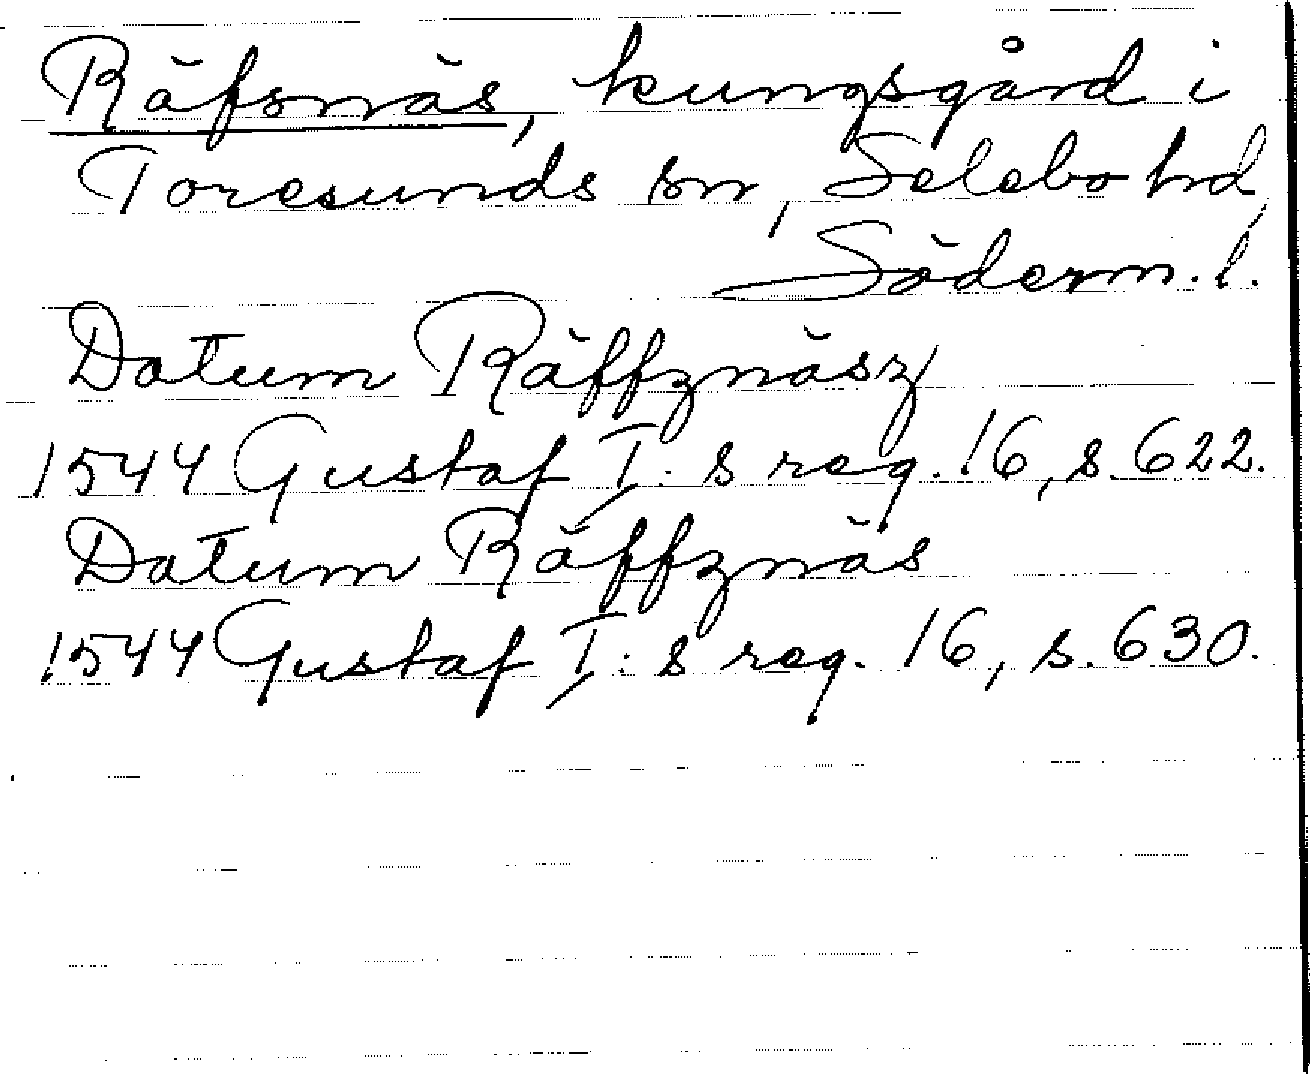 Räfsnäs, kungsgård i
Toresunds sn, Selebo hd,
Söderm. l.
Datum Räffznäsz
1544 Gustaf I:s reg. 16, s. 622.
Datum Räffznäs
1544 Gustaf I:s reg. 16, s. 630.